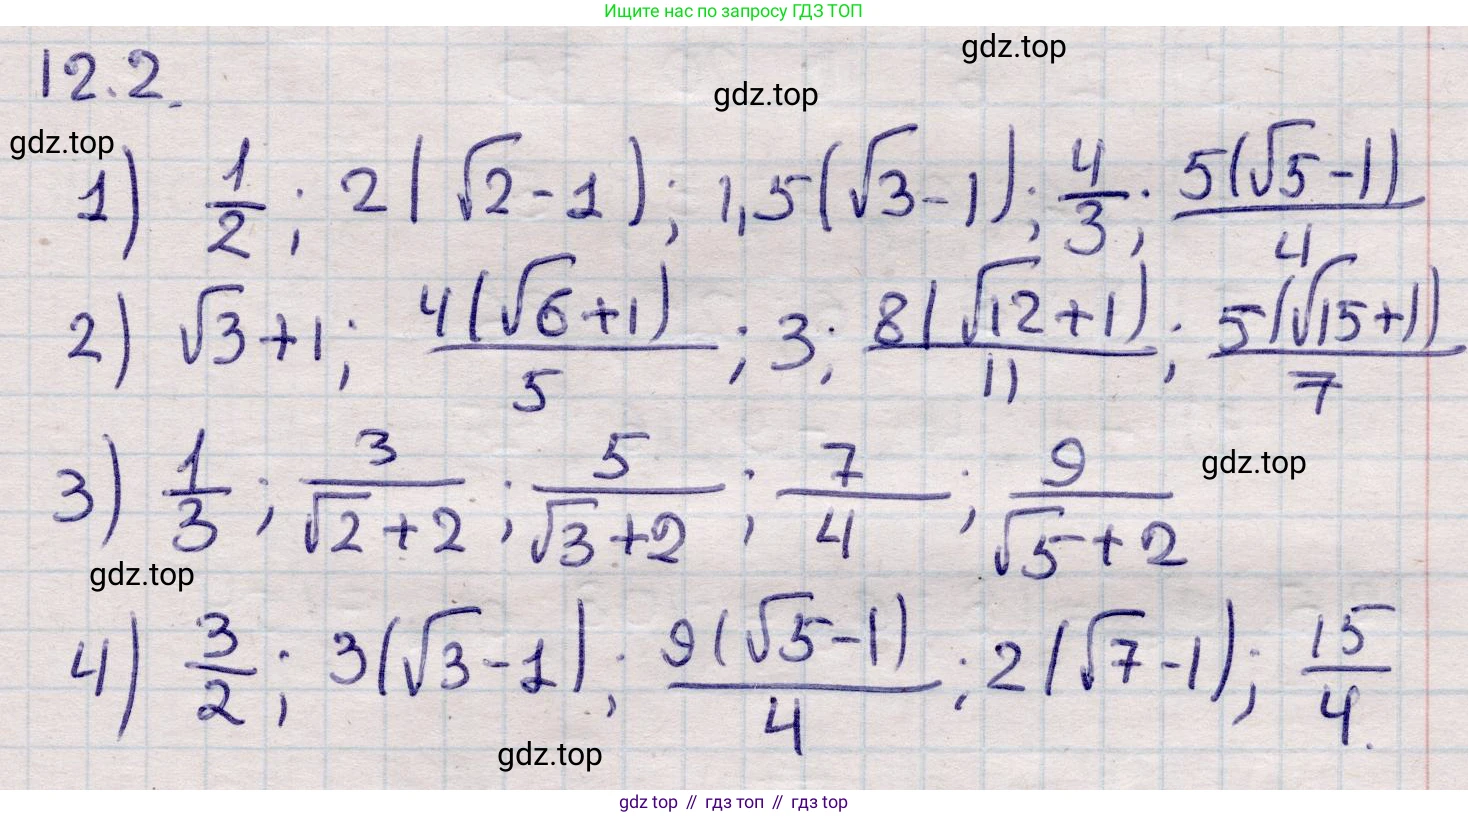 Ищите нас по запросу ГДЗ ТОП
12.2.
gdz.top
gdz.top
gdz.top
1) 1/2; 2(√2-1); 1,5(√3-1); 4/3; 5(√5-1)/4
2) √3+1; 4(√6+1)/5; 3; 8(√12+1)/11; 5(√15+1)/7
3) 1/3; 3/(√2+2); 5/(√3+2); 7/4; 9/(√5+2)
gdz.top
gdz.top
4) 3/2; 3(√3-1); 9(√5-1)/4; 2(√7-1); 15/4.
gdz.top
gdz top // гдз топ // гдз top